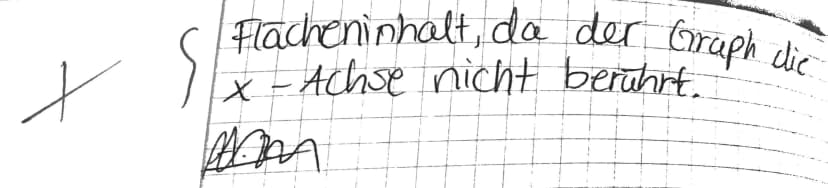 Flächeninhalt, da der Graph die
x-Achse nicht berührt.